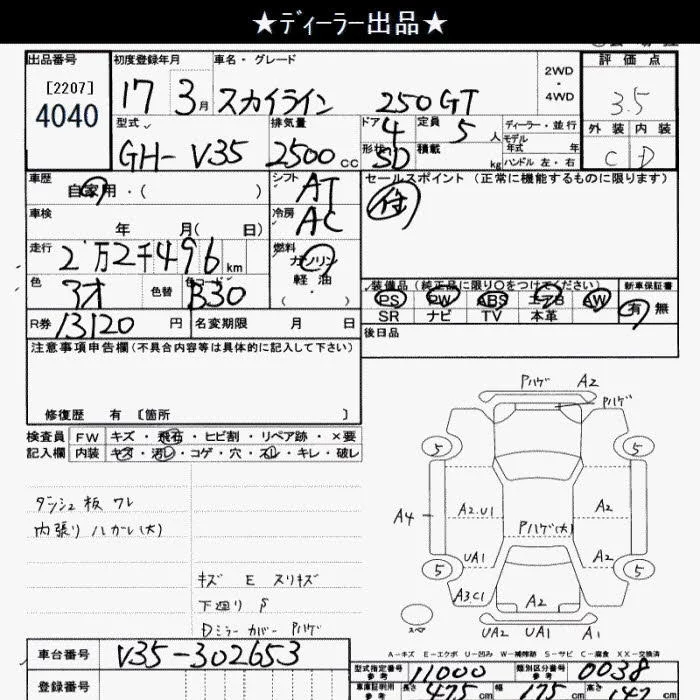 ★ディーラー出品★
出品番号
[2207]
4040
初度登録年月
17 3月
車名・グレード
スカイライン 250GT
2WD
・
4WD
評価点
3.5
外装 内装
C D
型式
GH-V35
排気量
2500cc
ドア
4
形状
SD
定員
5人
積載
kg
ディーラー・並行
モデル
年式 年
ハンドル 左・右
車歴
自家用・( )
シフト
AT
セールスポイント (正常に機能するものに限ります)
車検
年 月( 日)
冷房
AC
走行
2万2千496km
燃料
ガソリン
軽油
( ・ )
色
色替
色コード
B30
装備品(純正品に限り○をつけてください)
新車保証書
PS PW ABS エアB AW
SR ナビ TV 本革
有 無
R券
13120円
名変期限 月 日
後日品
注意事項申告欄(不具合内容等は具体的に記入して下さい)
修復歴 有 [箇所 ]
検査員
記入欄
FW キズ・飛石・ヒビ割・リペア跡・×要
内装 キズ・汚レ・コゲ・穴・スレ・キレ・破レ
ダッシュ板 ワレ
内張り ハガレ(大)
キズ E スリキズ
下廻り S
Dミラーカバー Pハゲ
Pハゲ A2
Pハゲ
5 5
A4
A2.U1
A2
Pハゲ(大)
UA1
A2
5 5
A3C1
A2
スペア
UA2 UA1 A1
A-キズ E-エクボ U-凹み W-補修跡 S-サビ C-腐食 XX-交換済
車台番号
V35-302653
登録番号
型式指定番号
参考
11000
類別区分番号
参考
0038
車庫証明用
参考
長さ 475cm
幅 175cm
高さ 147cm